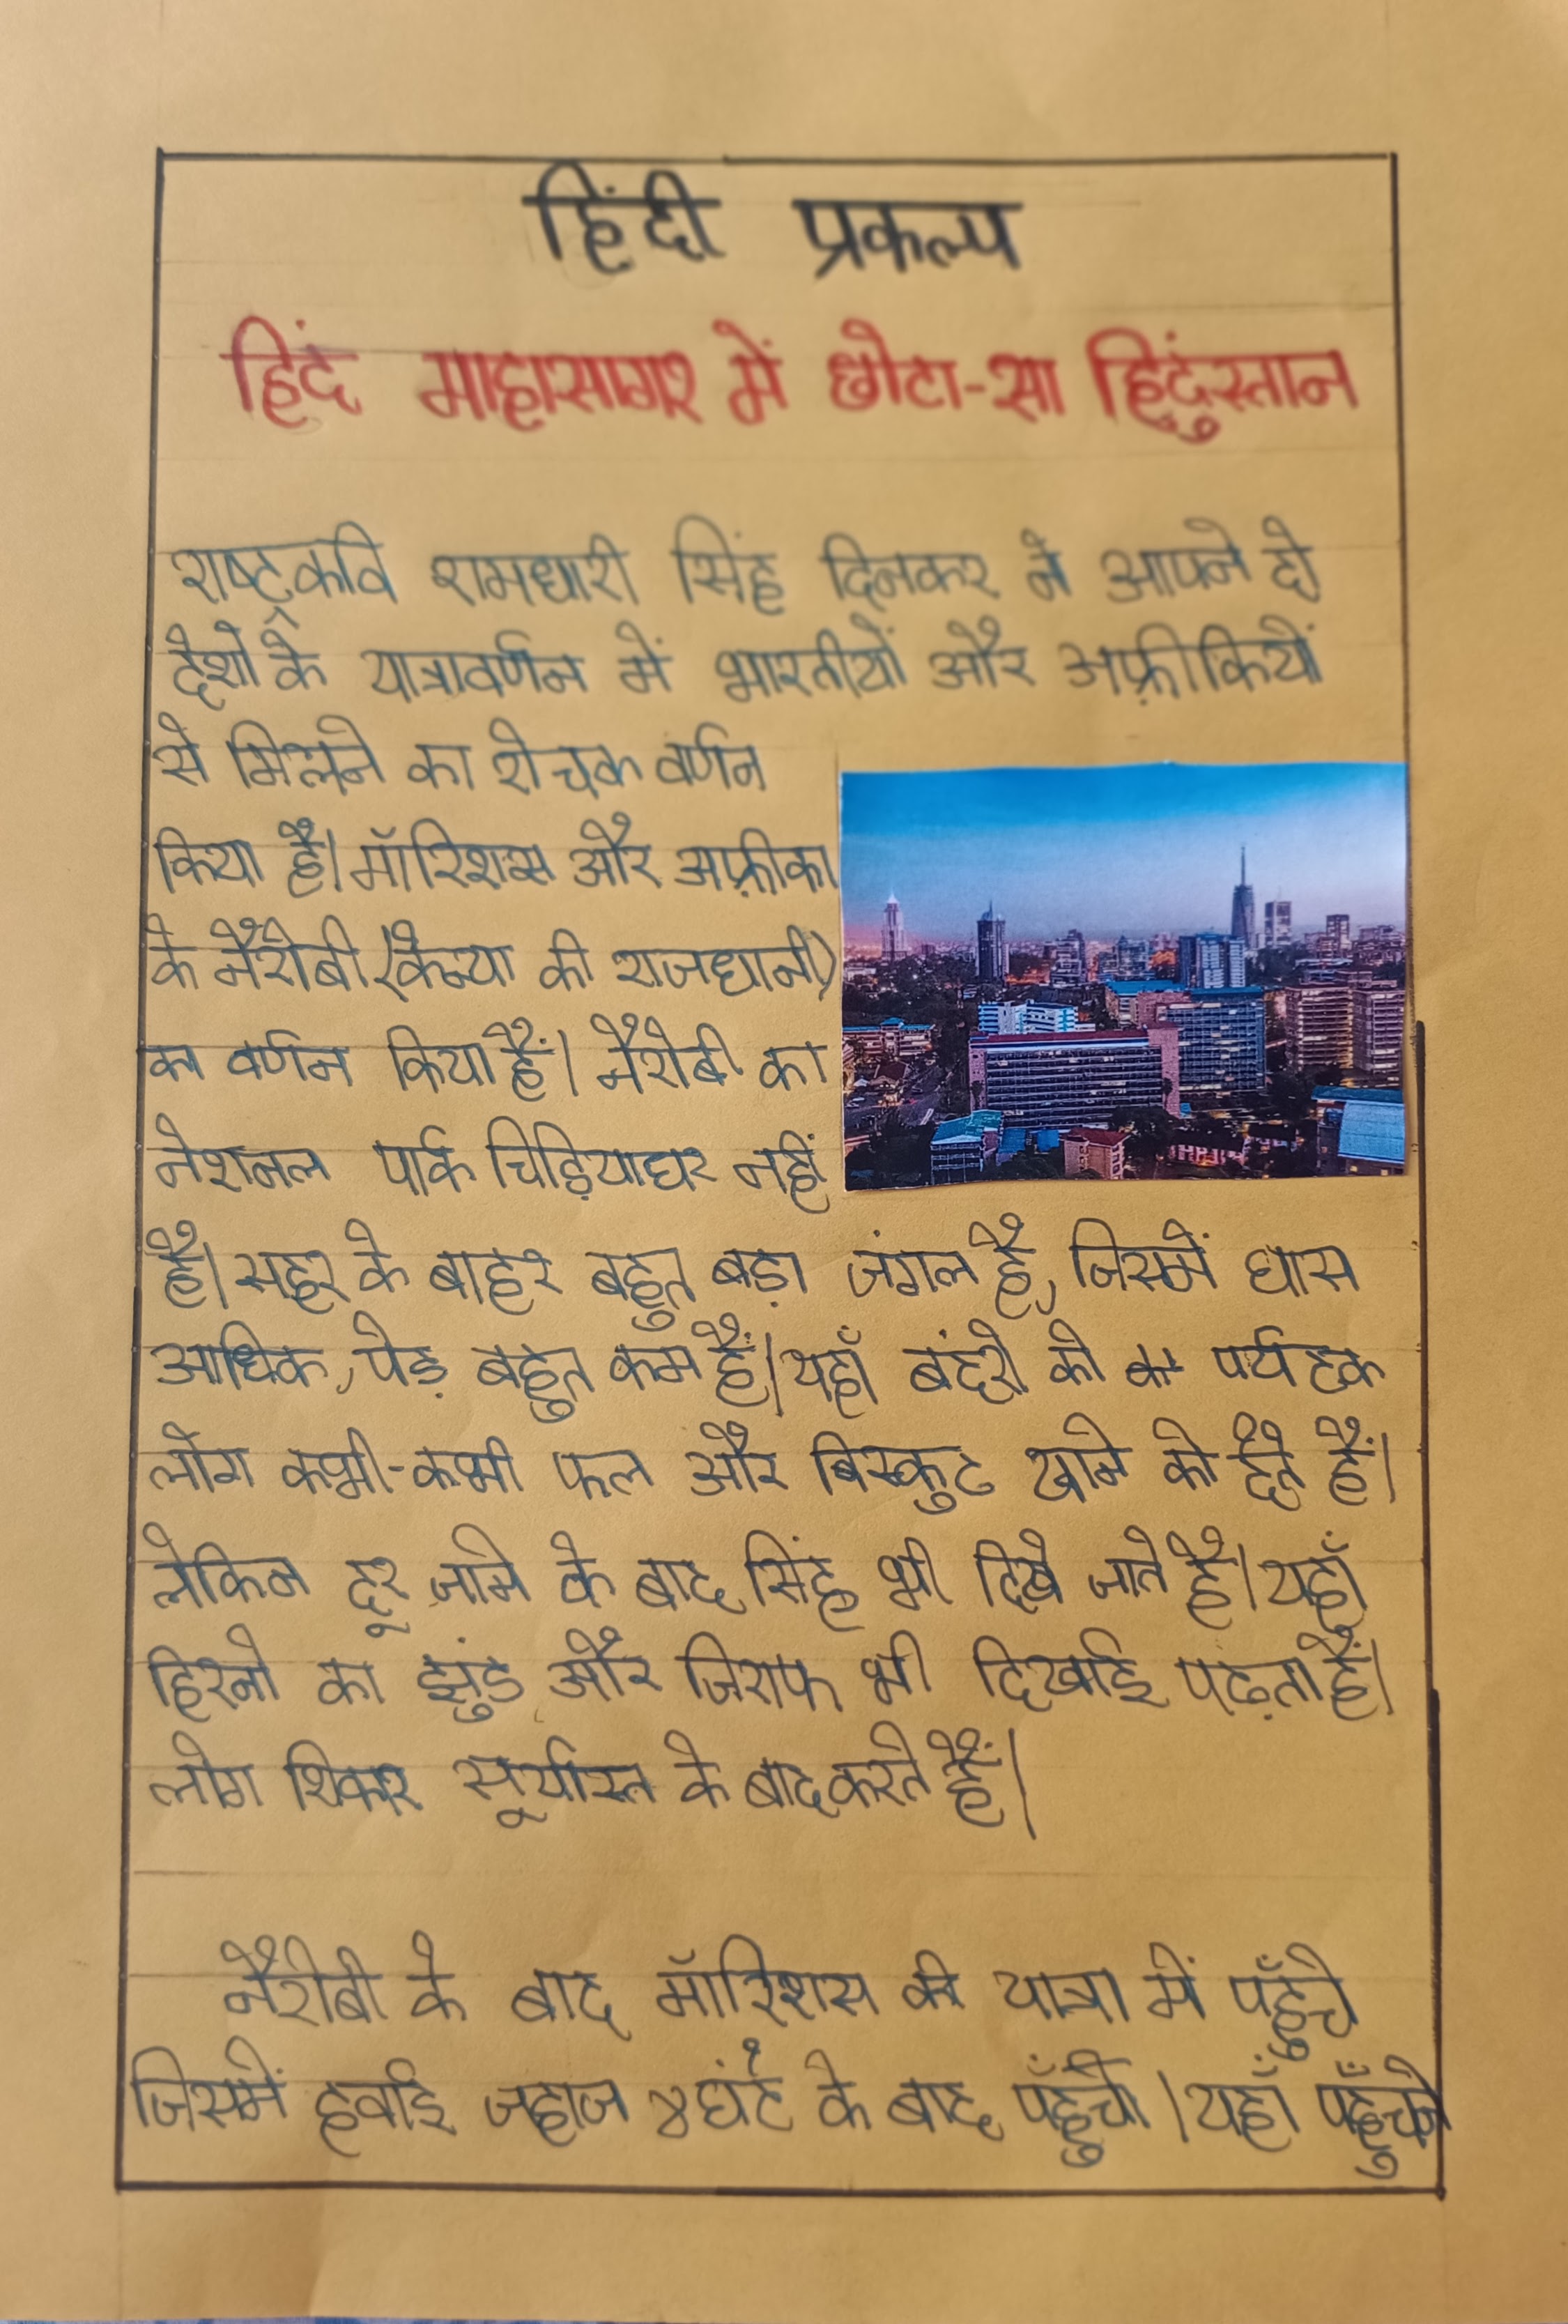 हिंदी प्रकल्प
हिंद माहासागर में छोटा-सा हिंदुस्तान
राष्ट्रकवि रामधारी सिंह दिनकर ने आपने दो
देशो के यात्रावर्णन में भारतीयों और अफ़्रीकियों
से मिलने का रोचक वर्णन
किया है। मॉरिशस और अफ़्रीका
के नैरौबी (केन्या की राजधानी)
का वर्णन किया हैं। नैरोबी का
नेशनल पार्क चिड़ियाघर नहीं
है। सहर के बाहर बहुत बड़ा जंगल है, जिसमें घास
आधिक, पेड़ बहुत कम हैं। यहाँ बंदरो को पर्यटक
लोग कभी-कभी फल और बिस्कुट खाने को देते हैं।
लेकिन दूर जाने के बाद सिंह भी दिखे जाते है। यहाँ
हिरनो का झुंड और जिराफ भी दिखाई पढ़ता हैं।
लोग शिकार सूर्यास्त के बाद करते हैं।
नैरोबी के बाद मॉरिशस की यात्रा में पहुँचे
जिसमें हवाई जहाज ४ घंटे के बाद पहुँची। यहाँ पहुँचने